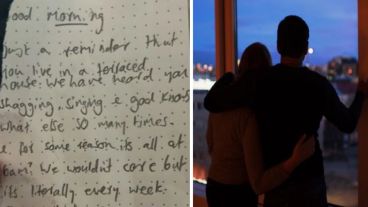 Good morning
Just a reminder that
you live in a terraced
house. We have heard you
shagging, singing & god knows
what else so many times.
& for some reason its all at
6am? We wouldn't care but
its literally every week.